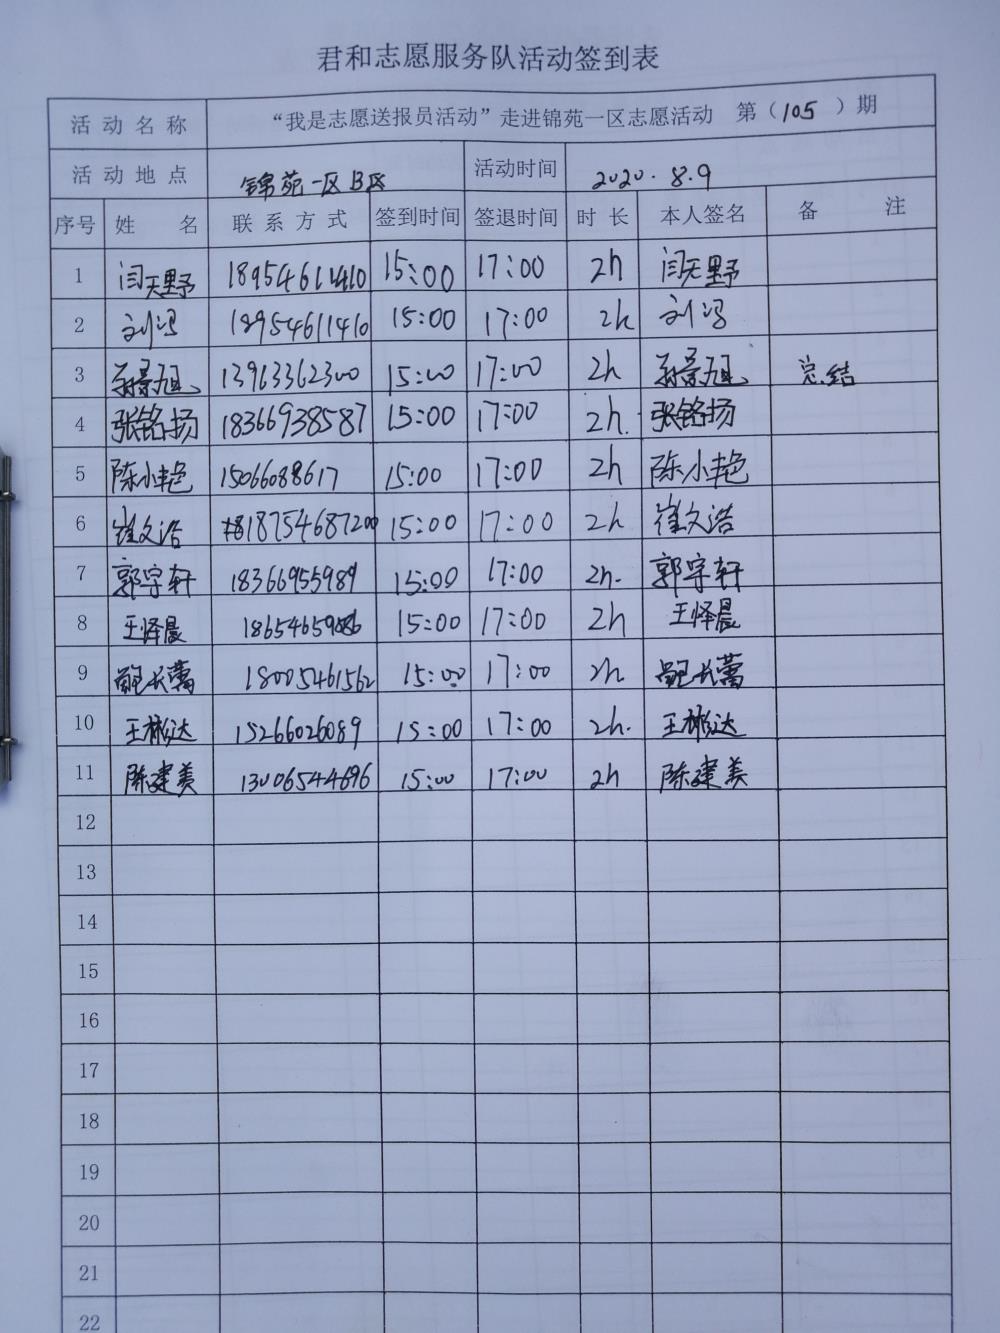 君和志愿服务队活动签到表
活动名称 “我是志愿送报员活动”走进锦苑一区志愿活动 第（105）期
活动地点 锦苑一区B区 活动时间 2020.8.9
序号 姓名 联系方式 签到时间 签退时间 时长 本人签名 备注
1 闫天野 18954611410 15:00 17:00 2h 闫天野
2 刘冯 18954611410 15:00 17:00 2h 刘冯
3 孙景旭 13963362300 15:00 17:00 2h 孙景旭 总结
4 张铭扬 18366938587 15:00 17:00 2h. 张铭扬
5 陈小艳 15066088617 15:00 17:00 2h 陈小艳
6 崔文浩 18754687200 15:00 17:00 2h 崔文浩
7 郭宇轩 18366955989 15:00 17:00 2h. 郭宇轩
8 王怿晨 15:00 17:00 2h 王怿晨
9 18005461562 15:00 17:00 2h
10 王彬达 15266026089 15:00 17:00 2h. 王彬达
11 陈建美 13006544696 15:00 17:00 2h 陈建美
12
13
14
15
16
17
18
19
20
21
22